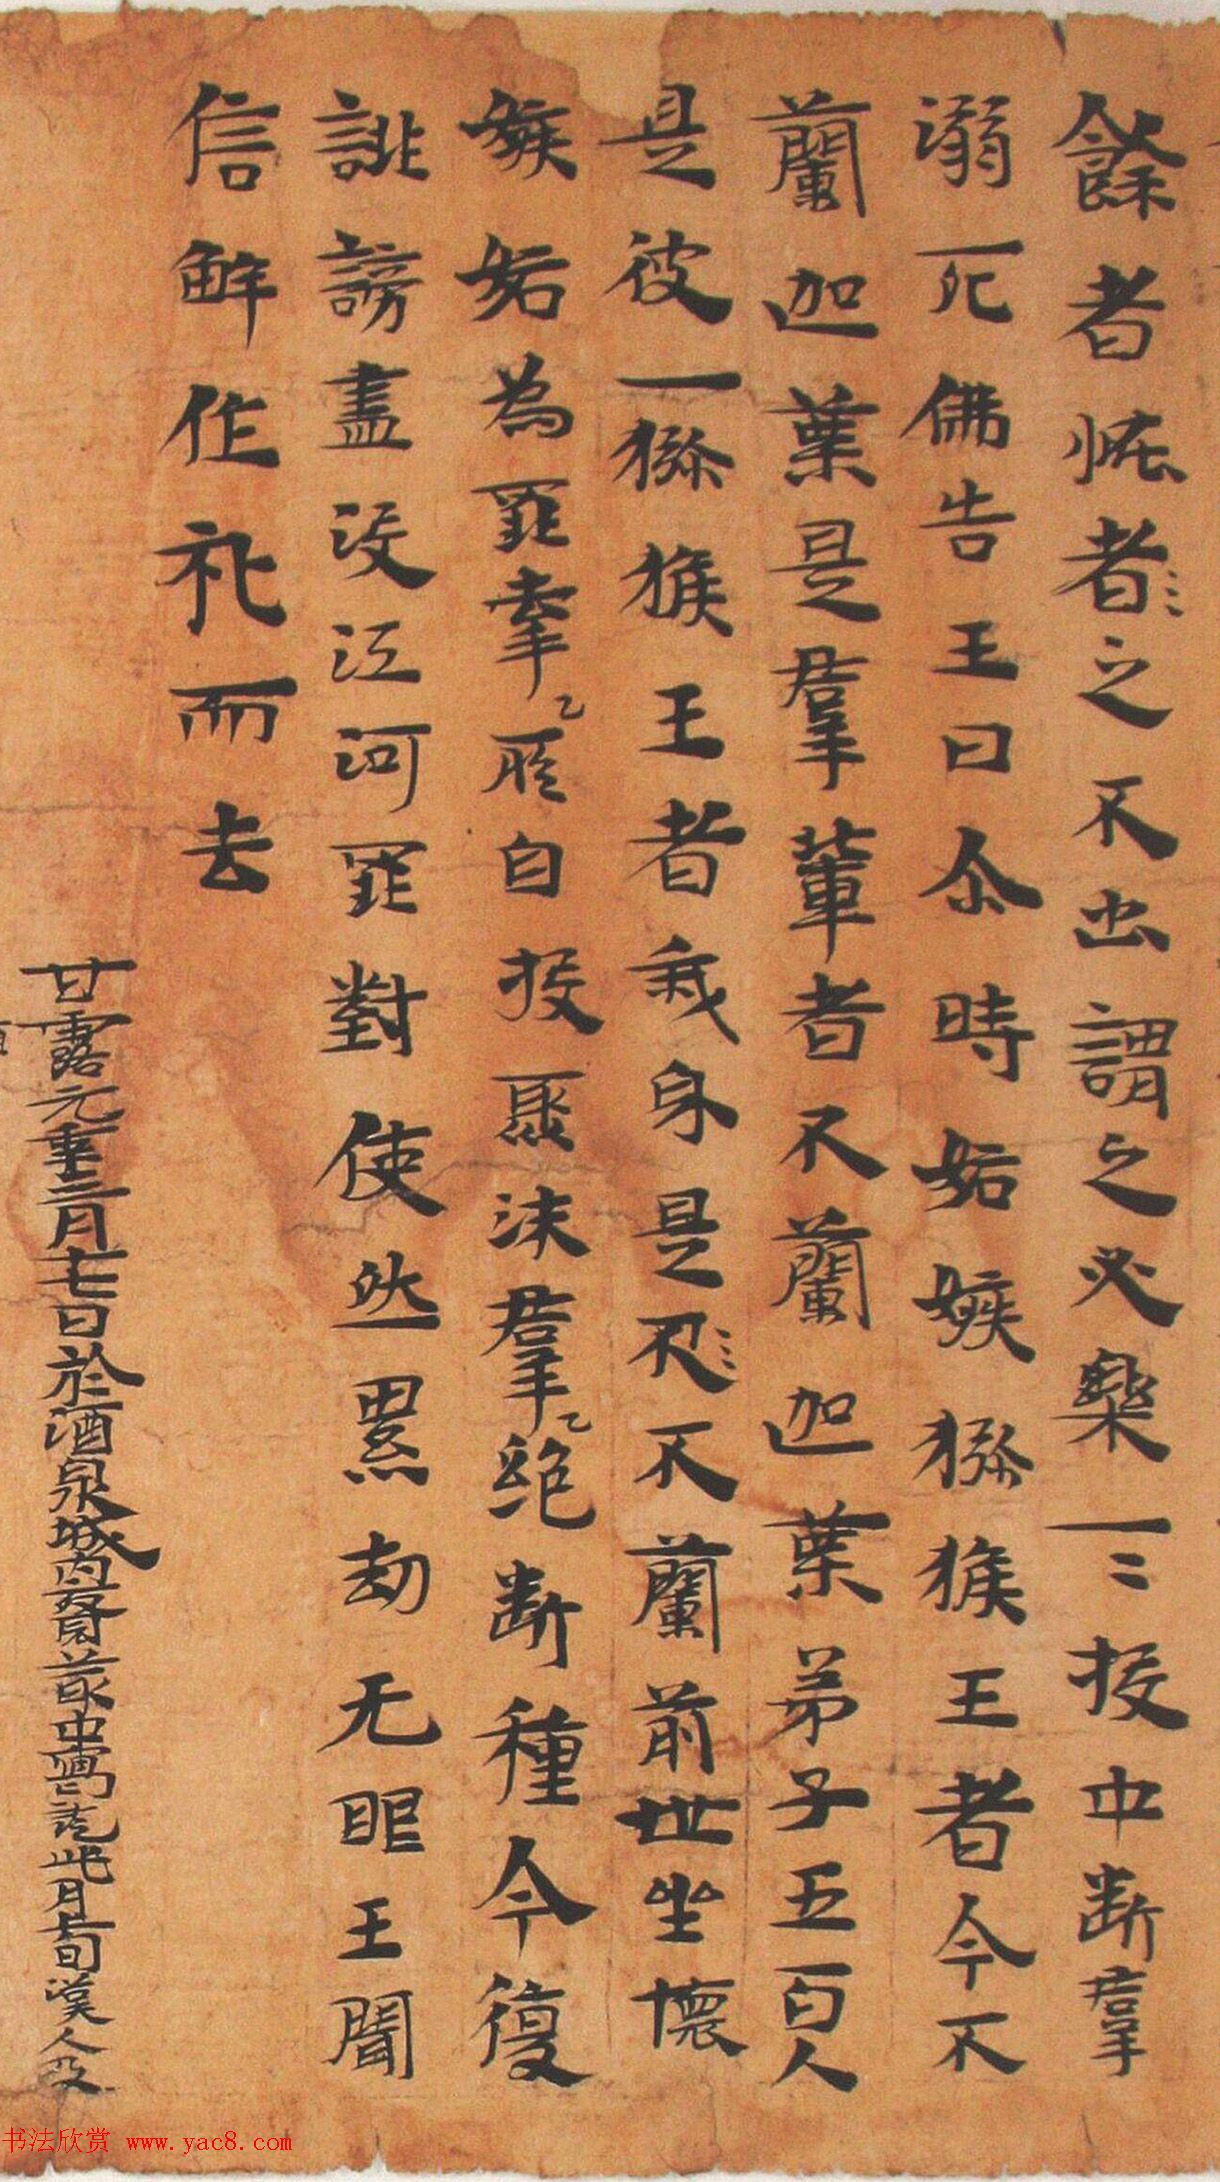 餘者恠者之不出謂之必樂一〻投中断羣
溺死佛告王曰尒時妬嫉獼猴王者今不
蘭迦葉是羣輩者不蘭迦葉弟子五百人
是彼一獼猴王者我身是不蘭前世坐懷
嫉妬為罪牽乙所自投聚沫羣乙絶断種今復
誹謗盡沒江河罪對使然累劫无限王聞
信解作礼而去
甘露元年三月十七日於酒泉城内齋叢中寫訖此月上旬漢人及
书法欣赏 www.yac8.com